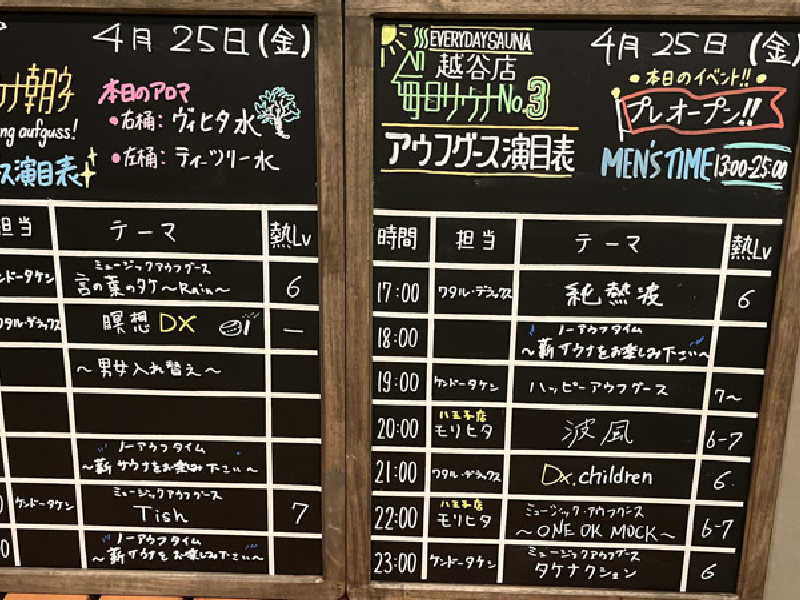 4月25日(金)
朝
ng aufguss!
ス演目表
本日のアロマ
•右桶: ヴィヒタ水
•左桶: ティーツリー水
担当 テーマ 熱Lv
ンドータケシ ミュージックアウフグース
言の葉のタケ〜Rain〜 6
ワタル・デラックス 瞑想DX —
〜男女入れ替え〜
ノーアウフタイム
〜薪サウナをお楽しみ下さい〜
ケンドータケシ ミュージックアウフグース
Tish 7
ノーアウフタイム
〜薪サウナをお楽しみ下さい〜
EVERYDAYSAUNA
越谷店
毎日サウナNo.3
アウフグース演目表
4月25日(金)
•本日のイベント!!•
プレオープン!!
MEN'S TIME 13:00-25:00
時間 担当 テーマ 熱Lv
17:00 ワタル・デラックス 純熱波 6
18:00 ノーアウフタイム
〜薪サウナをお楽しみ下さい〜
19:00 ケンドータケシ ハッピーアウフグース 7〜
20:00 八王子店
モリヒタ 波風 6-7
21:00 ワタル・デラックス Dx.children 6
22:00 八王子店
モリヒタ ミュージック・アウフグース
〜ONE OK MOCK〜 6-7
23:00 ケンドータケシ ミュージックアウフグース
タケナクション 6